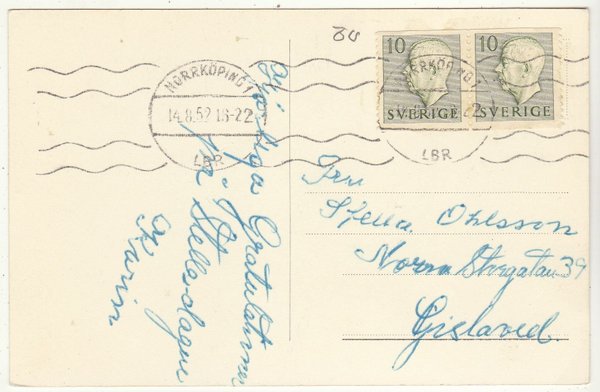 20
10
10
SVERIGE
SVERIGE
NORRKÖPING 1
14.8.52 18-22
LBR
NORRKÖPING
LBR
Hjärtliga Gratulationer
på Stella-dagen
Karin
Fru
Stella Ohlsson
Norra Storgatan 39
Gislaved.